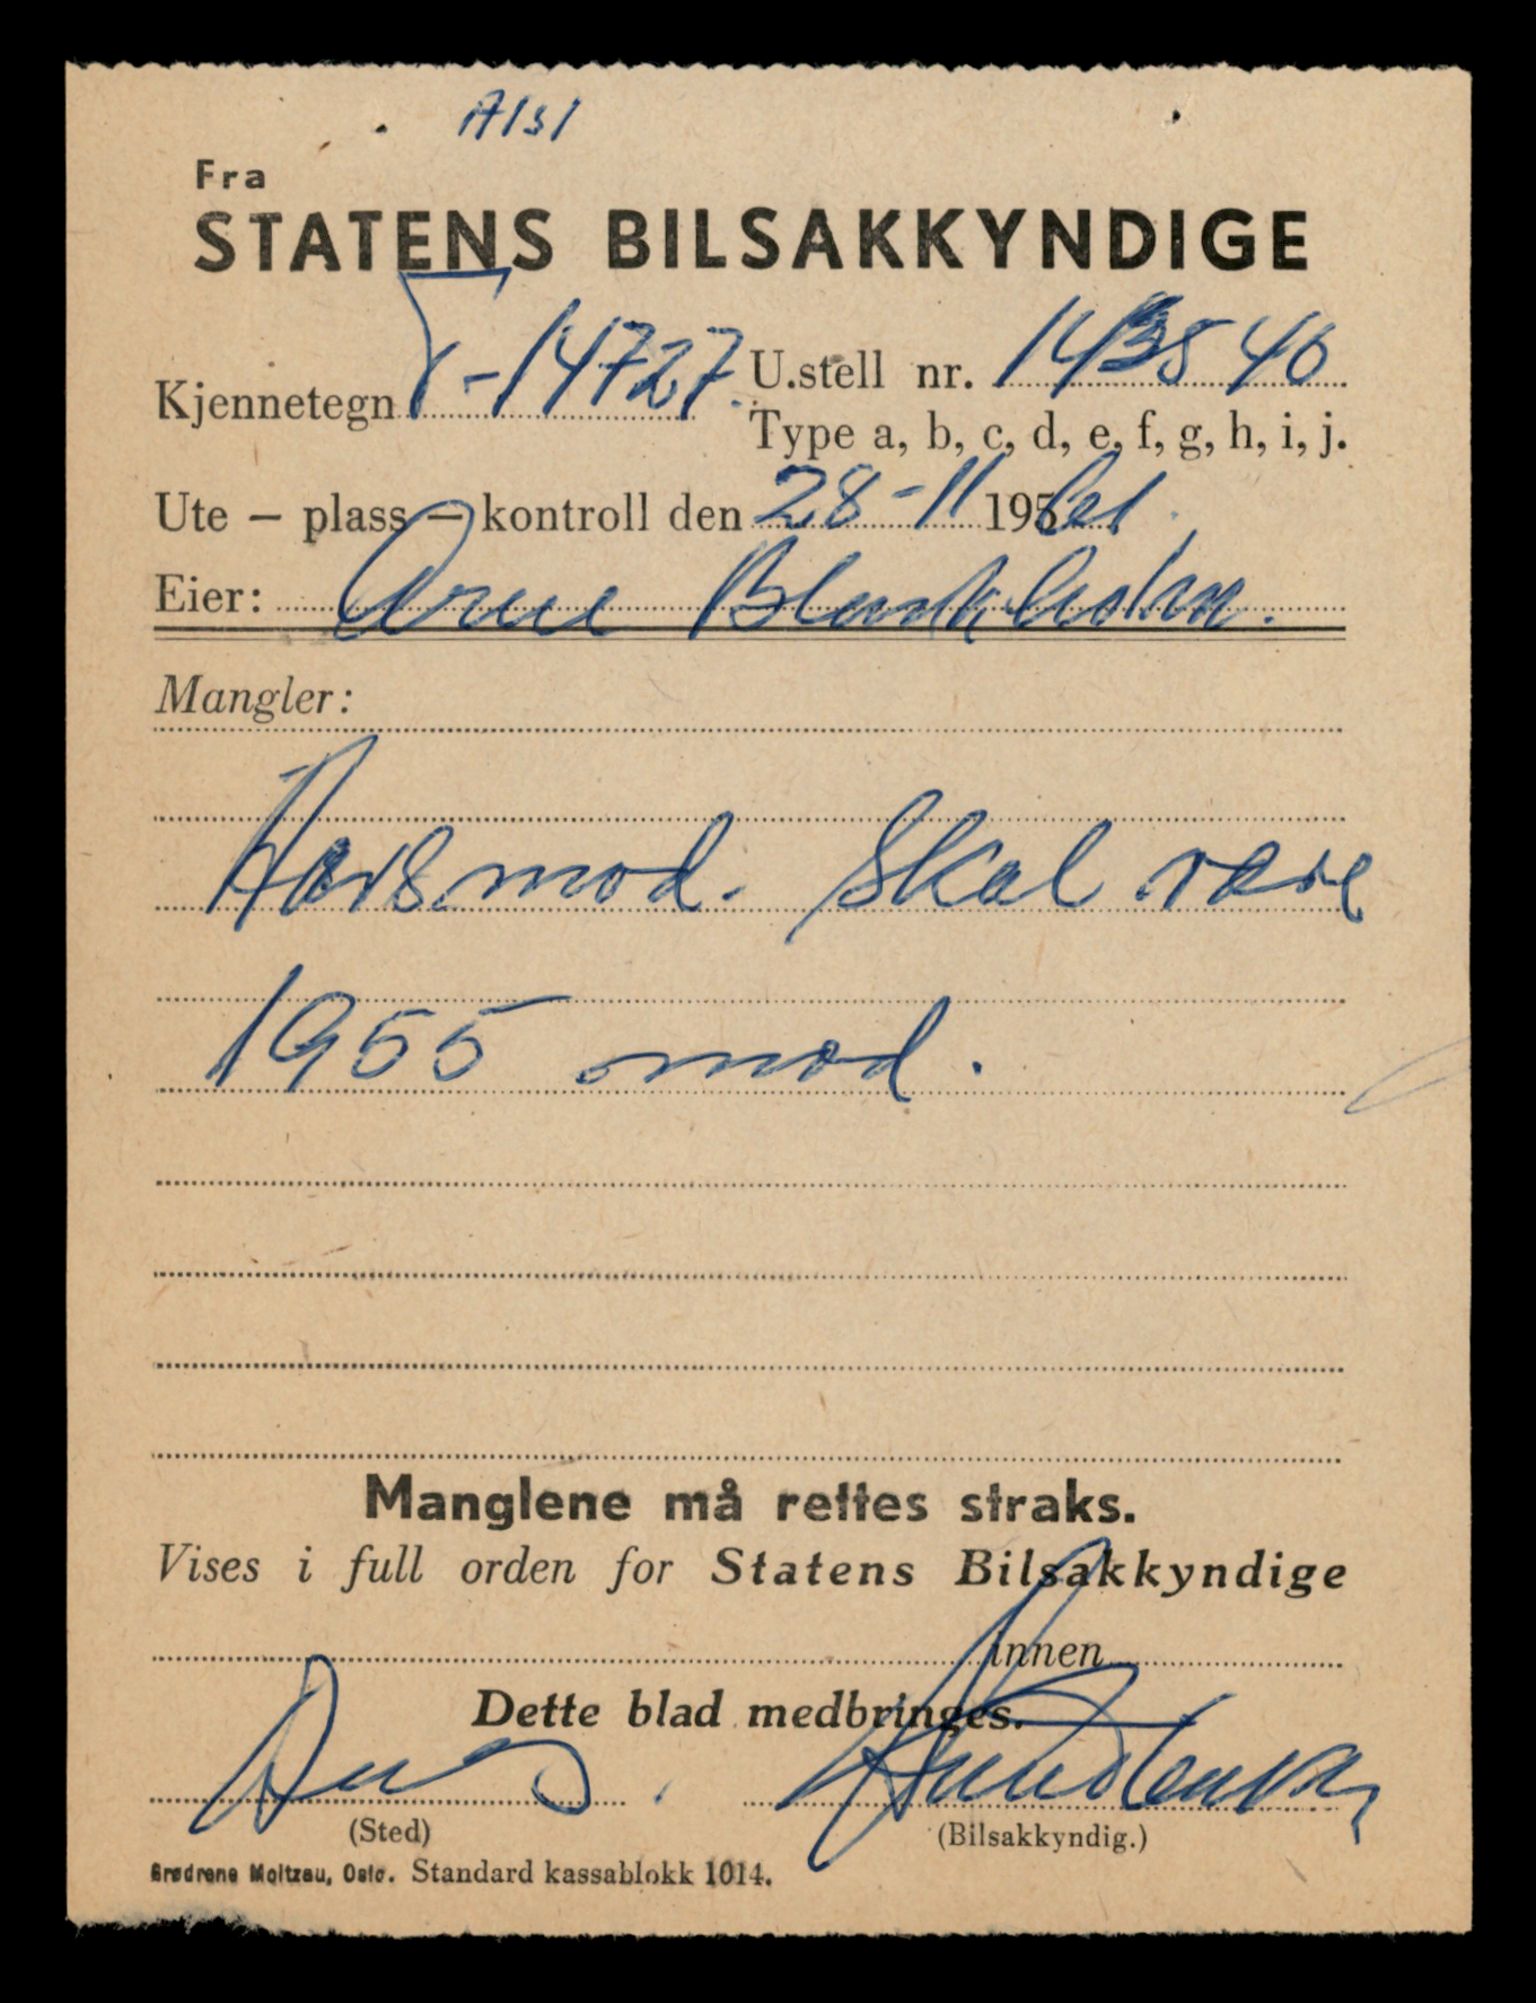 A131
Fra
STATENS BILSAKKYNDIGE
Kjennetegn T-14727. U.stell nr. 143540
Type a, b, c, d, e, f, g, h, i, j.
Ute – plass – kontroll den 28-11 195
Eier: Arne Blankholm.
Mangler:
Årsmod. Skal være
1955 mod.
Manglene må rettes straks.
Vises i full orden for Statens Bilsakkyndige
innen
Dette blad medbringes.
(Sted) (Bilsakkyndig.)
Brødrene Moltzau, Oslo. Standard kassablokk 1014.